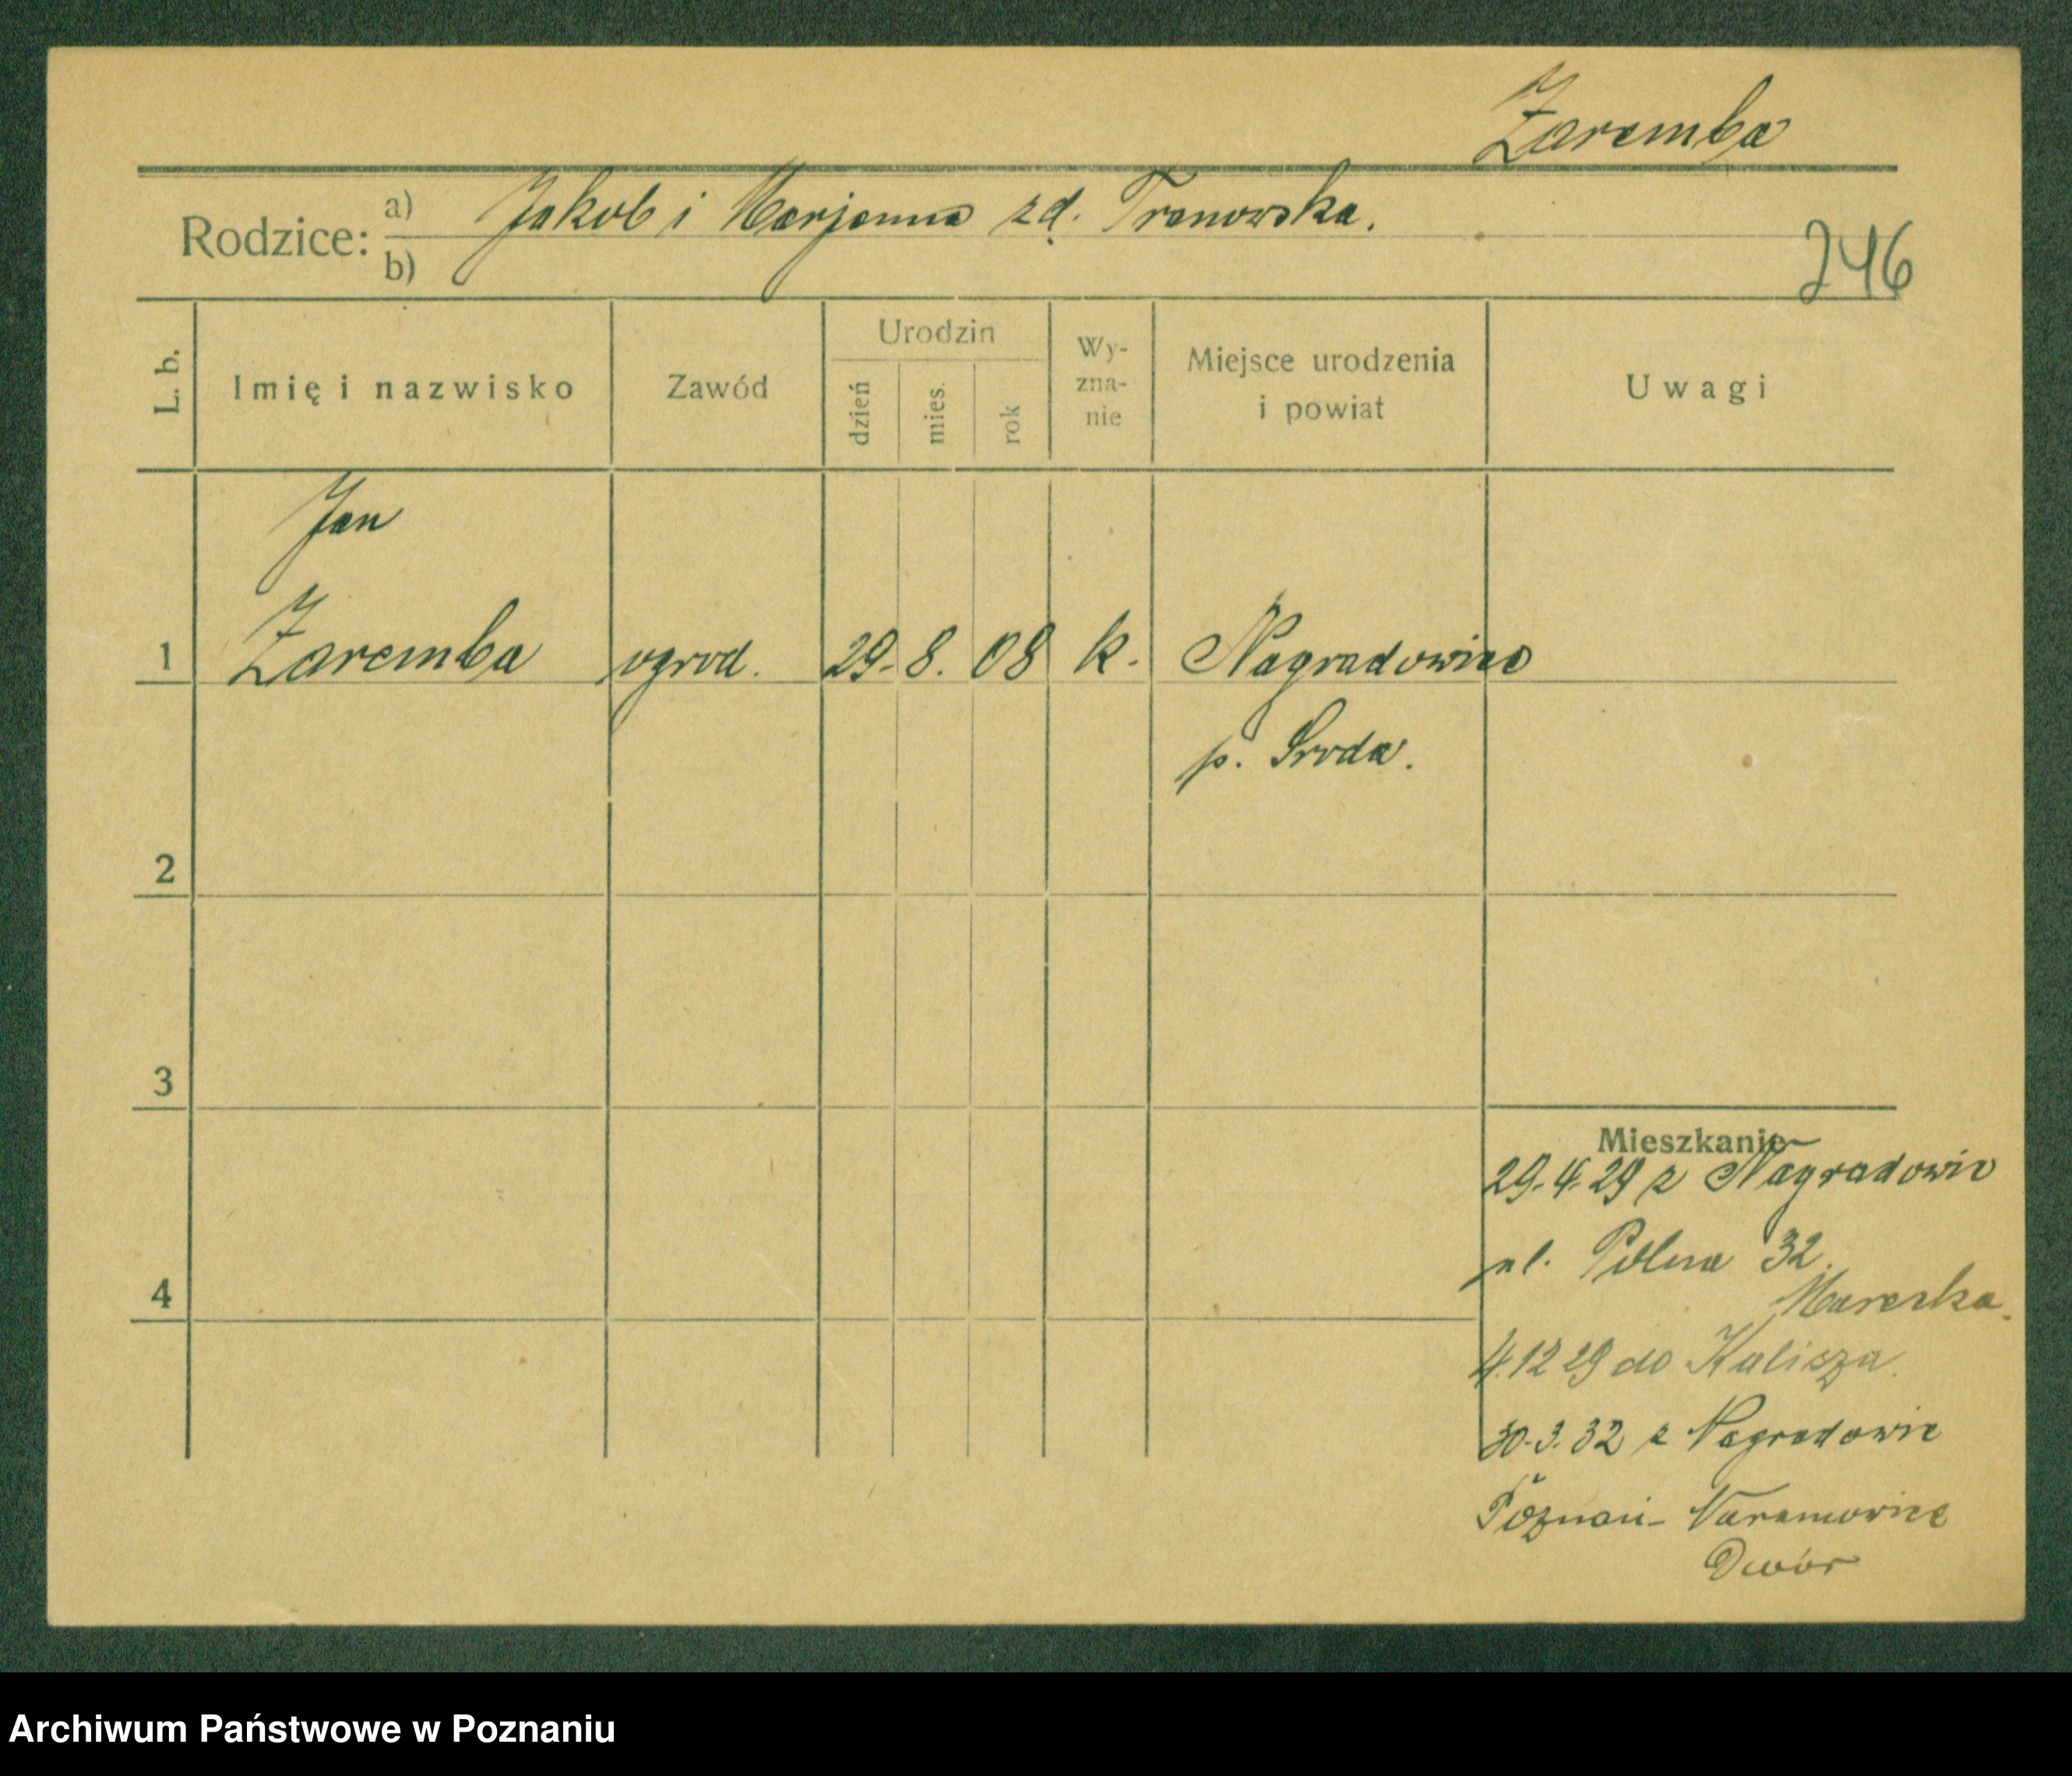 Zaremba
Rodzice: a) Jakob i Marjanna zd. Tranowska.
b)
246
L. b. Imię i nazwisko Zawód Urodzin dzień mies. rok Wy-zna-nie Miejsce urodzenia i powiat Uwagi
Jan
1 Zaremba ogrod. 29. 8. 08 k. Nagradowice
p. Sroda.
2
3
Mieszkanie
29.4.29 z Nagradowic
ul. Polna 32.
4
4.12 29 do Kalisza.
30.3.32 z Nagradowic
Poznań - Naramowice
Dwór
Archiwum Państwowe w Poznaniu